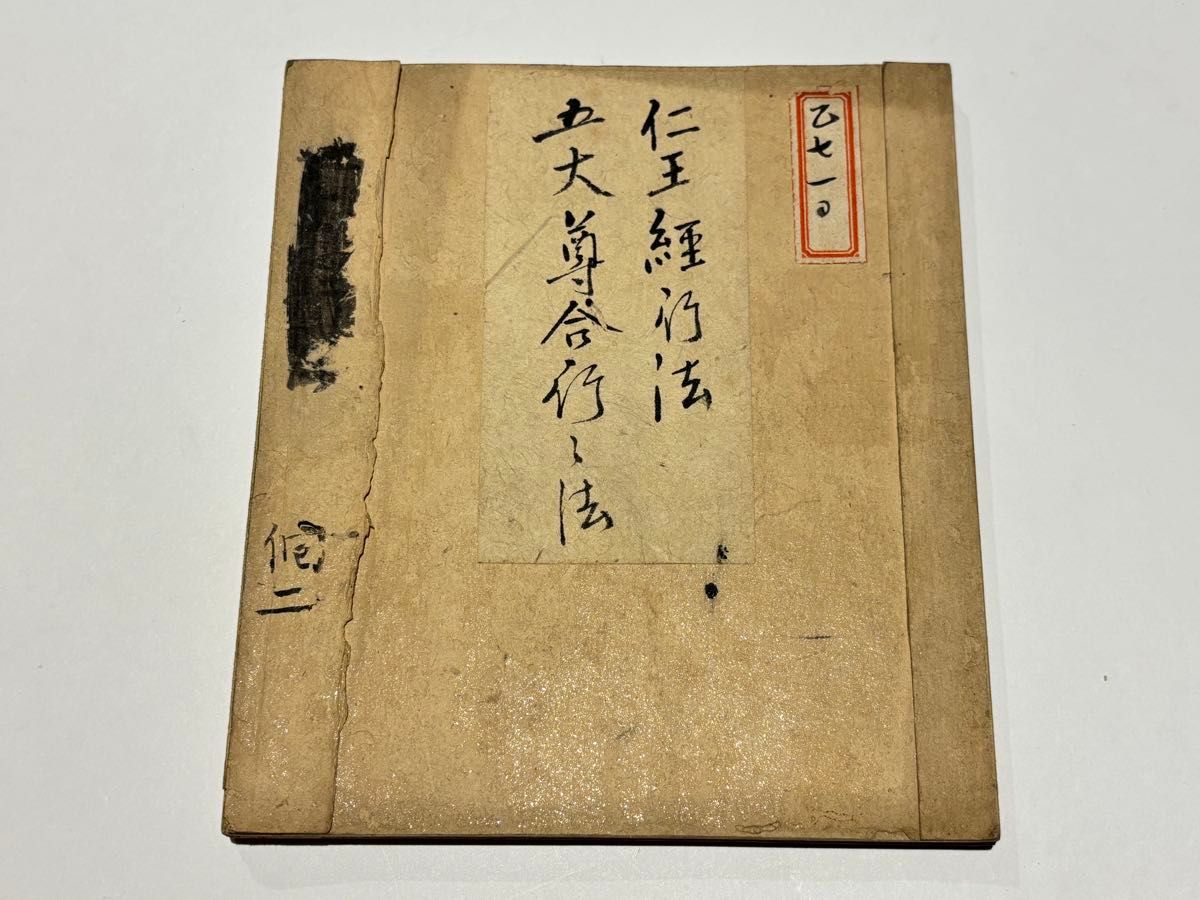 乙七一
仁王經行法
五大尊合行々法
二